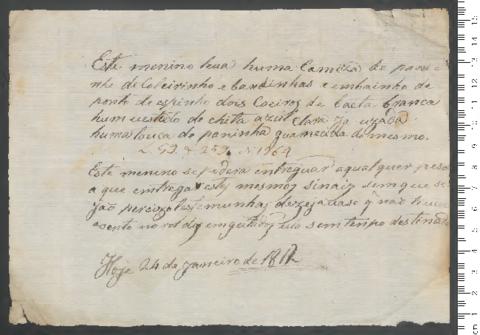 Este menino leva huma Camiza de pani
nho de Coleirinho e bardinhas e embainho de
ponto de espinho dois Coeiros de baeta branca
hum vestido de chita azul Clara ja uzada
huma touca de paninho guarnecida do mesmo.
L 53 f 253 N 1264
Este menino se podera entreguar a qualquer peso
a que entregar estes mesmos sinais sem que se
jão percizas testemunhas dezejadase q não houv
e sem tempo destinado
Hoje 24 de Janeiro de 1812